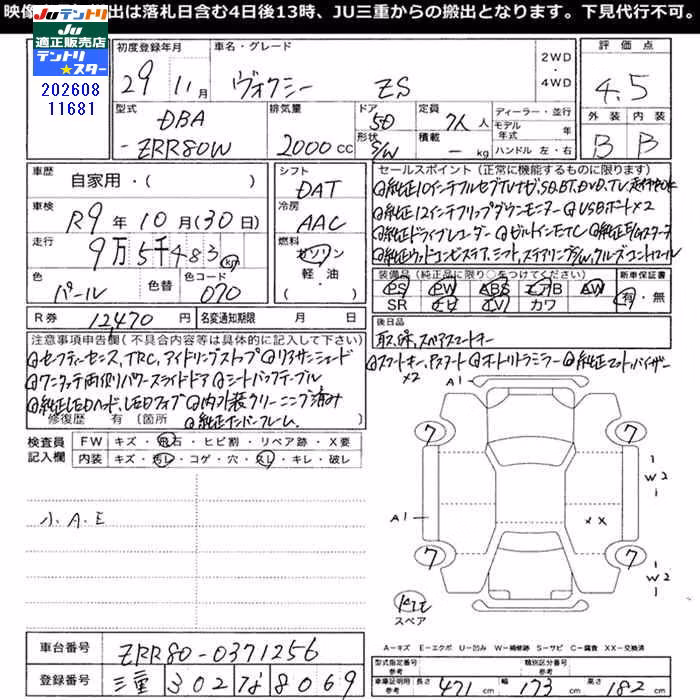 映像 出は落札日含む4日後13時、JU三重からの搬出となります。下見代行不可。
JUテントリ
適正販売店
テントリ
★スター
202608
11681
初度登録年月
29 11月
車名・グレード
ヴォクシー ZS
2WD
・
4WD
評価点
4.5
外装 内装
B B
型式
DBA
-ZRR80W
排気量
2000cc
ドア
50
形状
S/W
定員
7人 人
積載
- kg
ディーラー・並行
モデル
年式 年
ハンドル 左・右
車歴
自家用・( )
車検
R9年10月(30日)
走行
9万5千483km
色
パール
色替
色コード
070
シフト
DAT
冷房
AAC
燃料
ガソリン
軽・油
( )
セールスポイント(正常に機能するものに限ります)
純正10インチフルセグTVナビ,SD,BT,DVD,TV,走行中OK
純正12インチフリップダウンモニター USBポート×2
純正ドライブレコーダー ビルトインETC
純正ウッドコンビステア、シフト、ステアリングS/W,クルーズコントロール
装備品(純正品に限り○をつけてください)
新車保証書
PS PW ABS エアB AW
SR カワ
有・無
R券 12470円
名変通知期限 月 日
後日品
取,保,スペアスマートキー
注意事項申告欄(不具合内容等は具体的に記入して下さい)
セーフティーセンス,TRC,アイドリングストップ リヤサンシェード
ワンタッチ両側パワースライドドア シートバックテーブル
純正LEDヘッド,LEDフォグ 内外装クリーニング済み
修復歴 有〔箇所 純正ナンバーフレーム.
スマートキー,Pスタート オートリトラミラー 純正マット,バイザー
×2
検査員
記入欄
FW キズ・飛石・ヒビ割・リペア跡・X要
内装 キズ・汚レ・コゲ・穴・スレ・キレ・破レ
小.A.E
A1
7 7
1
W2
1
A1
××
7 7
1
W2
1
スペア
A−キズ E−エクボ U−凹み W−補修跡 S−サビ C−腐食 XX−交換済
車台番号 ZRR80-0371256
登録番号 三重 302 な 8069
型式指定番号
参考
類別区分番号
参考
車庫証明用
参考
長さ 471cm 幅 173cm 高さ 182cm